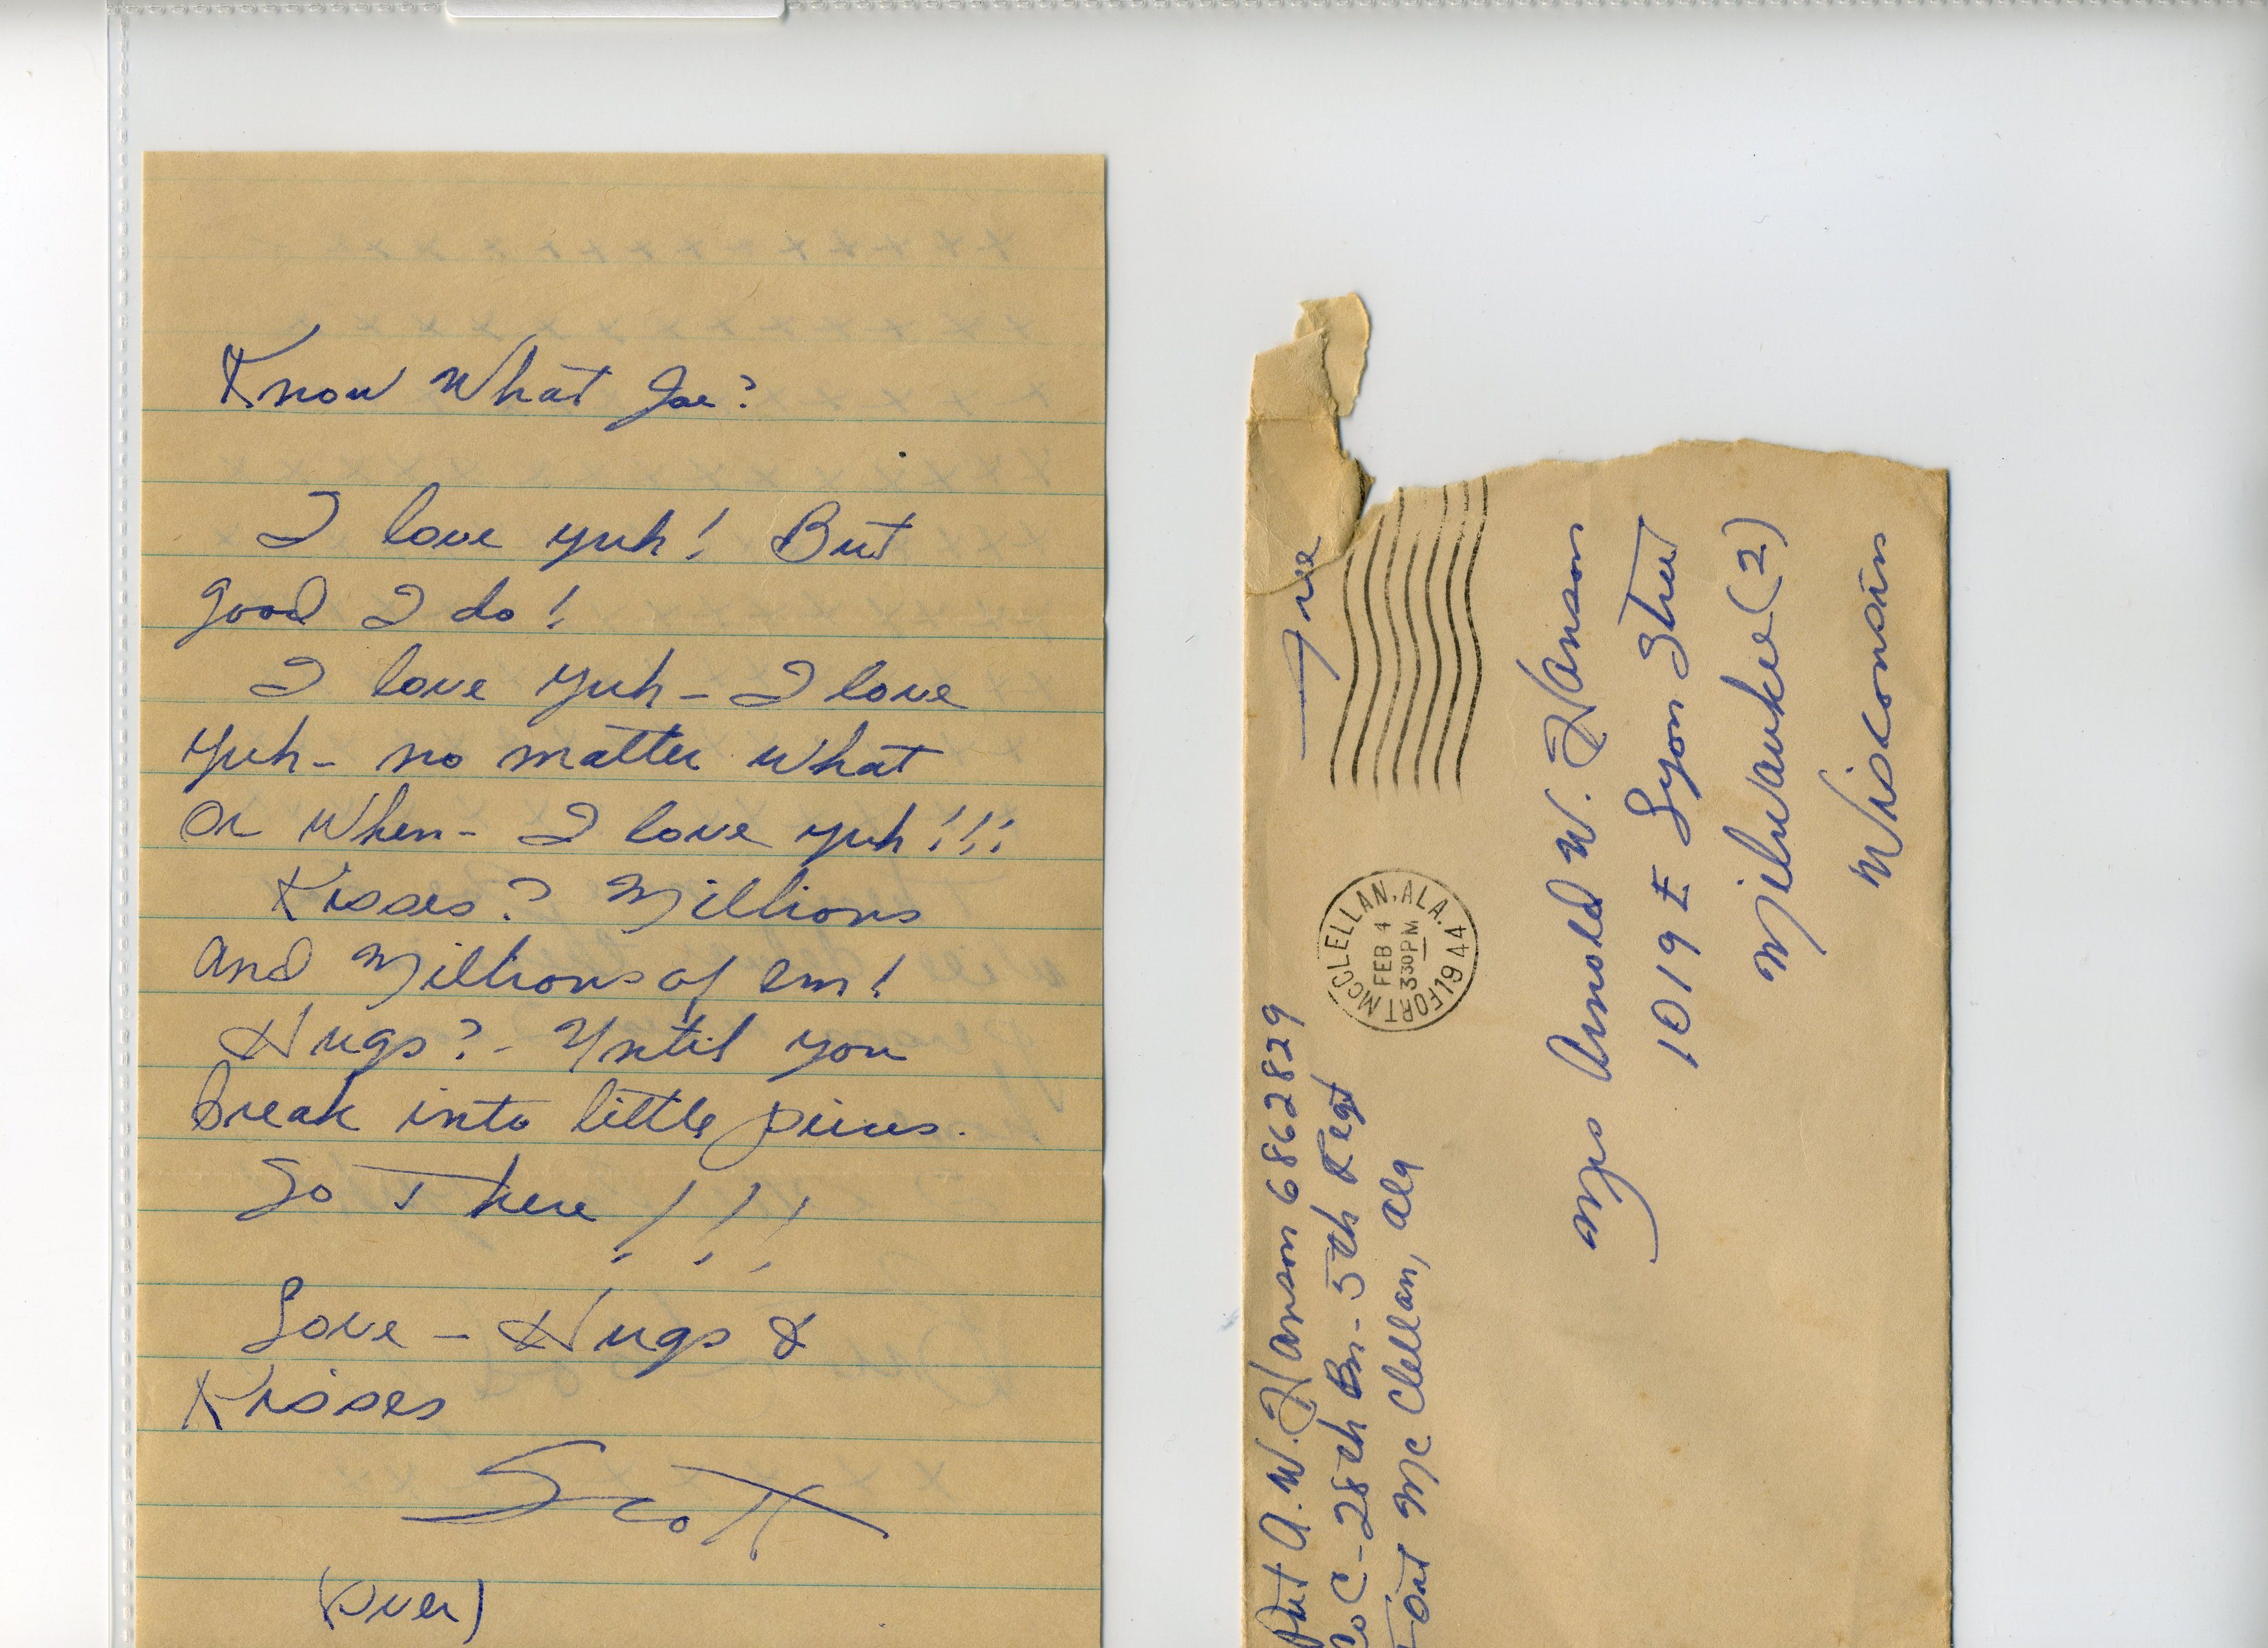 Know What Joe?
I love yuh! But
good I do!
I love yuh - I love
yuh - no matter what
or when - I love yuh!!!
Kisses? Millions
and Millions of em!
Hugs? - Until you
break into little pieces.
So There!!!
Love - Hugs &
Kisses
Scott
(over)
Pvt A. W. Hanson 6862829
Co C - 28th Bn - 5th Regt
Fort Mc Clellan, Ala
Free
FORT MCCLELLAN, ALA.
FEB 4
3 30 PM
1944
Mrs Arnold W. Hanson
1019 E Lyon Street
Milwaukee (2)
Wisconsin